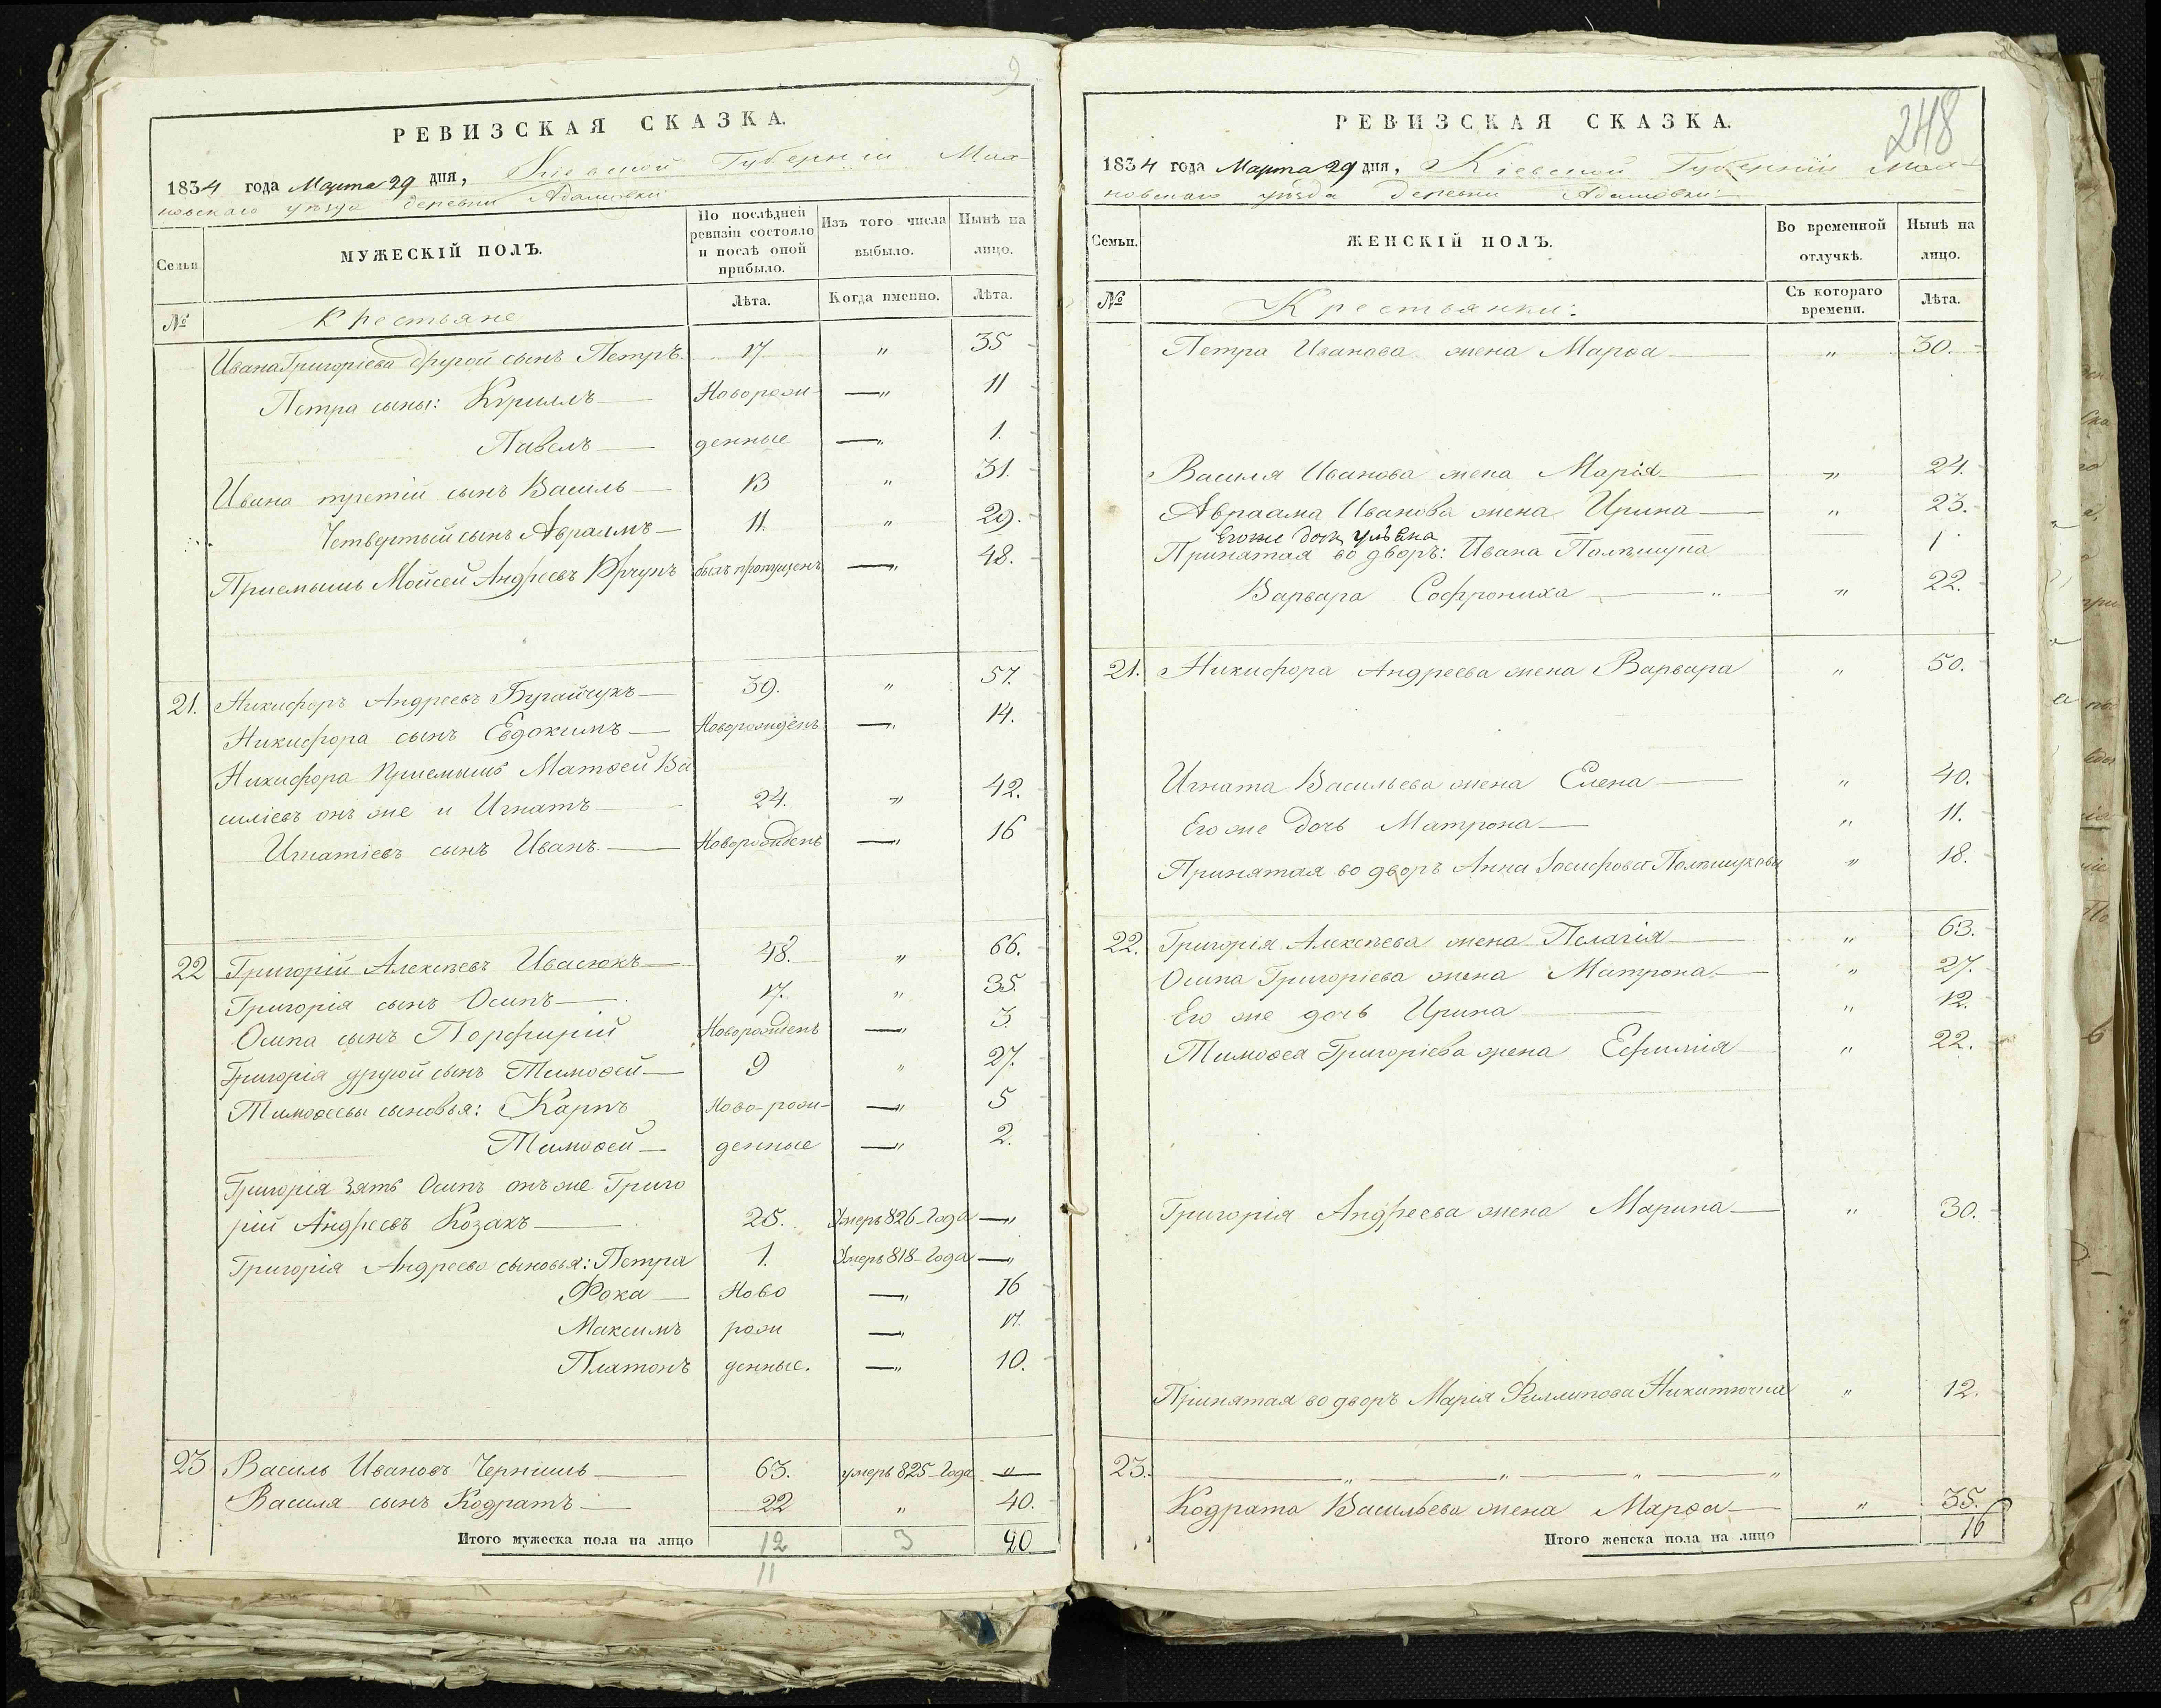 9
РЕВИЗСКАЯ СКАЗКА.
1834 года Марта 29 дня, Кіевской Губерніи Мах-
новскаго уѣзда деревни Адамовки
Семьи.
МУЖЕСКІЙ ПОЛЪ.
По послѣдней ревизіи состояло и послѣ оной прибыло.
Изъ того числа выбыло.
Нынѣ на лицо.
№
Крестьяне
Лѣта.
Когда именно.
Лѣта.
Ивана Григоріева другой сынъ Петръ. 17. " 35
Петра сыны: Кирилъ — Новорож- —" 11
Павелъ — денные —" 1.
Ивана третій сынъ Василь — 13 " 31.
Четвертый сынъ Авраамъ — 11. " 29.
Приемышъ Мойсей Андреевъ былъ пропущенъ —" 48.
21. Никифоръ Андреевъ Бугайчукъ — 39. " 57.
Никифора сынъ Евдокимъ — Новорожденъ —" 14.
Никифора Приемышъ Матѳей Ва
силіевъ онъ же и Игнатъ — 24. " 42.
Игнатіевъ сынъ Иванъ. — Новорожденъ —" 16
22 Григорій Алексѣевъ Ивасюкъ — 48. " 66.
Григорія сынъ Осипъ — 17. " 35.
Осипа сынъ Порфирій Новорожденъ —" 3.
Григорія другой сынъ Тимоѳей — 9 " 27.
Тимоѳеевы сыновья: Карпъ Ново-рож- —" 5
Тимоѳей — денные —" 2.
Григорія зять Осипъ онъ же Григо
рій Андреевъ Козакъ — 25. Умеръ 826-года —"
Григорія Андреева сыновья: Петра 1. Умеръ 818-года —"
Фока — Ново —" 16
Максимъ рож —"
Платонъ денные. —" 10.
23 Василь Ивановъ Чернишъ — 63. умеръ 825-года "
Василя сынъ Кодратъ — 22 " 40.
Итого мужеска пола на лицо 12 3 20
11
248
РЕВИЗСКАЯ СКАЗКА.
1834 года Марта 29 дня, Кіевской Губерніи Мах-
новскаго уѣзда деревни Адамовки
Семьи.
ЖЕНСКІЙ ПОЛЪ.
Во временной отлучкѣ.
Нынѣ на лицо.
№
Крестьянки:
Съ котораго времени.
Лѣта.
Петра Иванова жена Марѳа — " 30.
Василя Иванова жена Марія — " 24.
Авраама Иванова жена Ирина — " 23.
Егоже дочь Уліяна 1
Принятая во дворъ: Ивана Полищука
Варвара Софрониха — " 22.
21. Никифора Андреева жена Варвара " 50.
Игната Васильева жена Елена — " 40.
Его же дочь Матрона — " 11.
Принятая во дворъ Анна Іосифова Полищукова " 18.
22. Григорія Алексѣева жена Пелагія — " 63.
Осипа Григоріева жена Матрона. — " 27.
Его же дочь Ирина — " 12.
Тимоѳея Григоріева жена Ефимія — " 22.
Григорія Андреева жена Марина — " 30.
Принятая во дворъ Марія Филипова Никитючка " 12.
23. — " — " — " — "
Кодрата Васильева жена Марѳа — " 35.
Итого женска пола на лицо 16